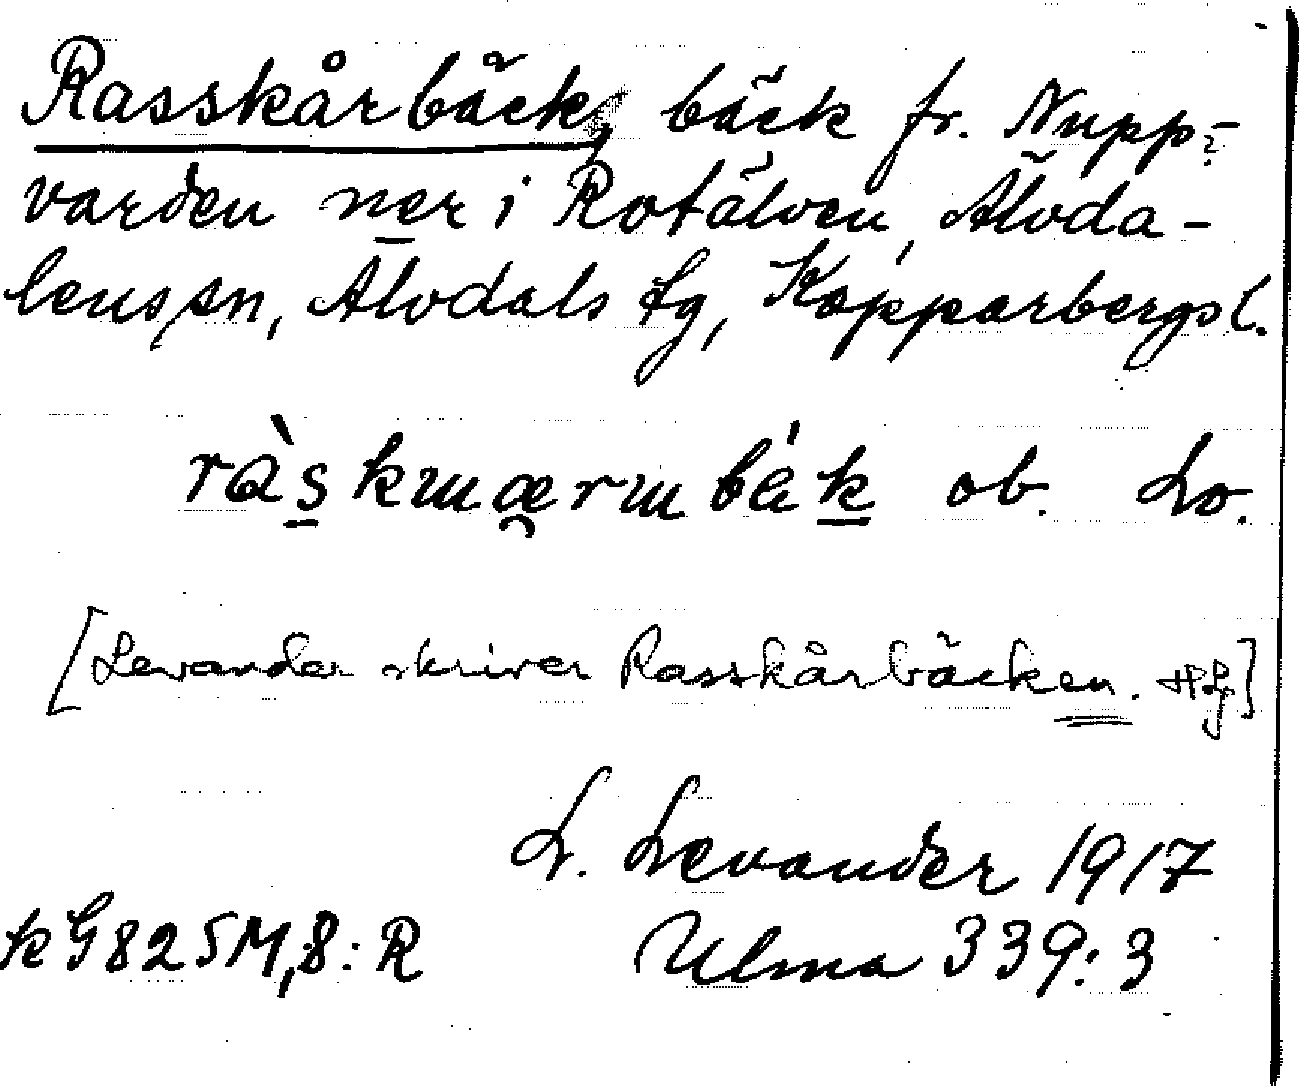 Rasskårbäck, bäck fr. Nupp-
varden ner i Rotälven, Älvda-
lens sn, Älvdals fg, Kopparbergs l.
ob. Lo.
[Levander skriver Rasskårbäcken. HLj]
L. Levander 1917
kG825M,8: R Ulma 339:3